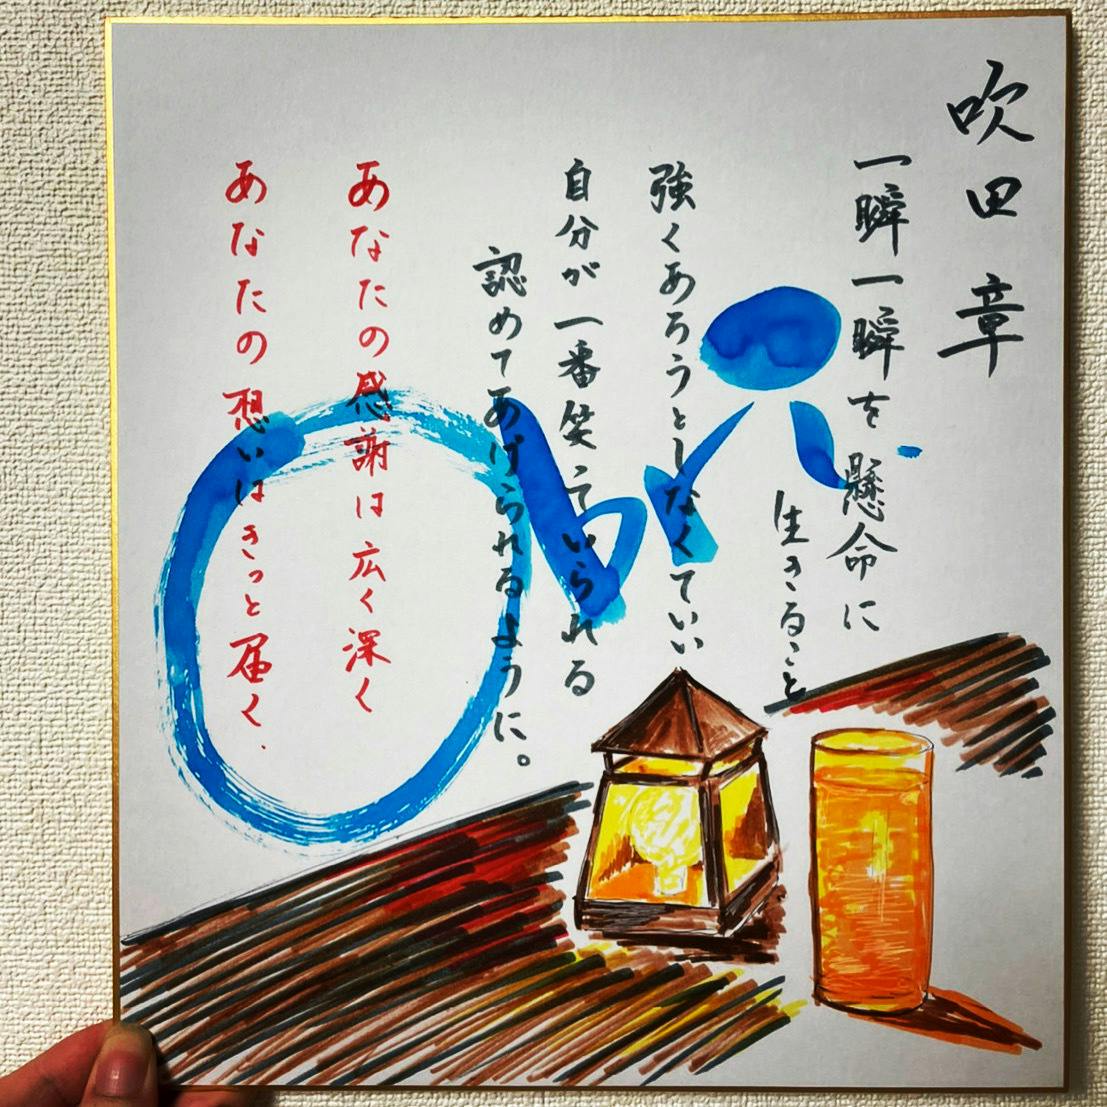 吹田章
一瞬一瞬を懸命に
生きること
強くあろうとしなくていい
自分が一番笑っていられる
認めてあげられるように。
あなたの感謝は広く深く
あなたの想いはきっと届く.